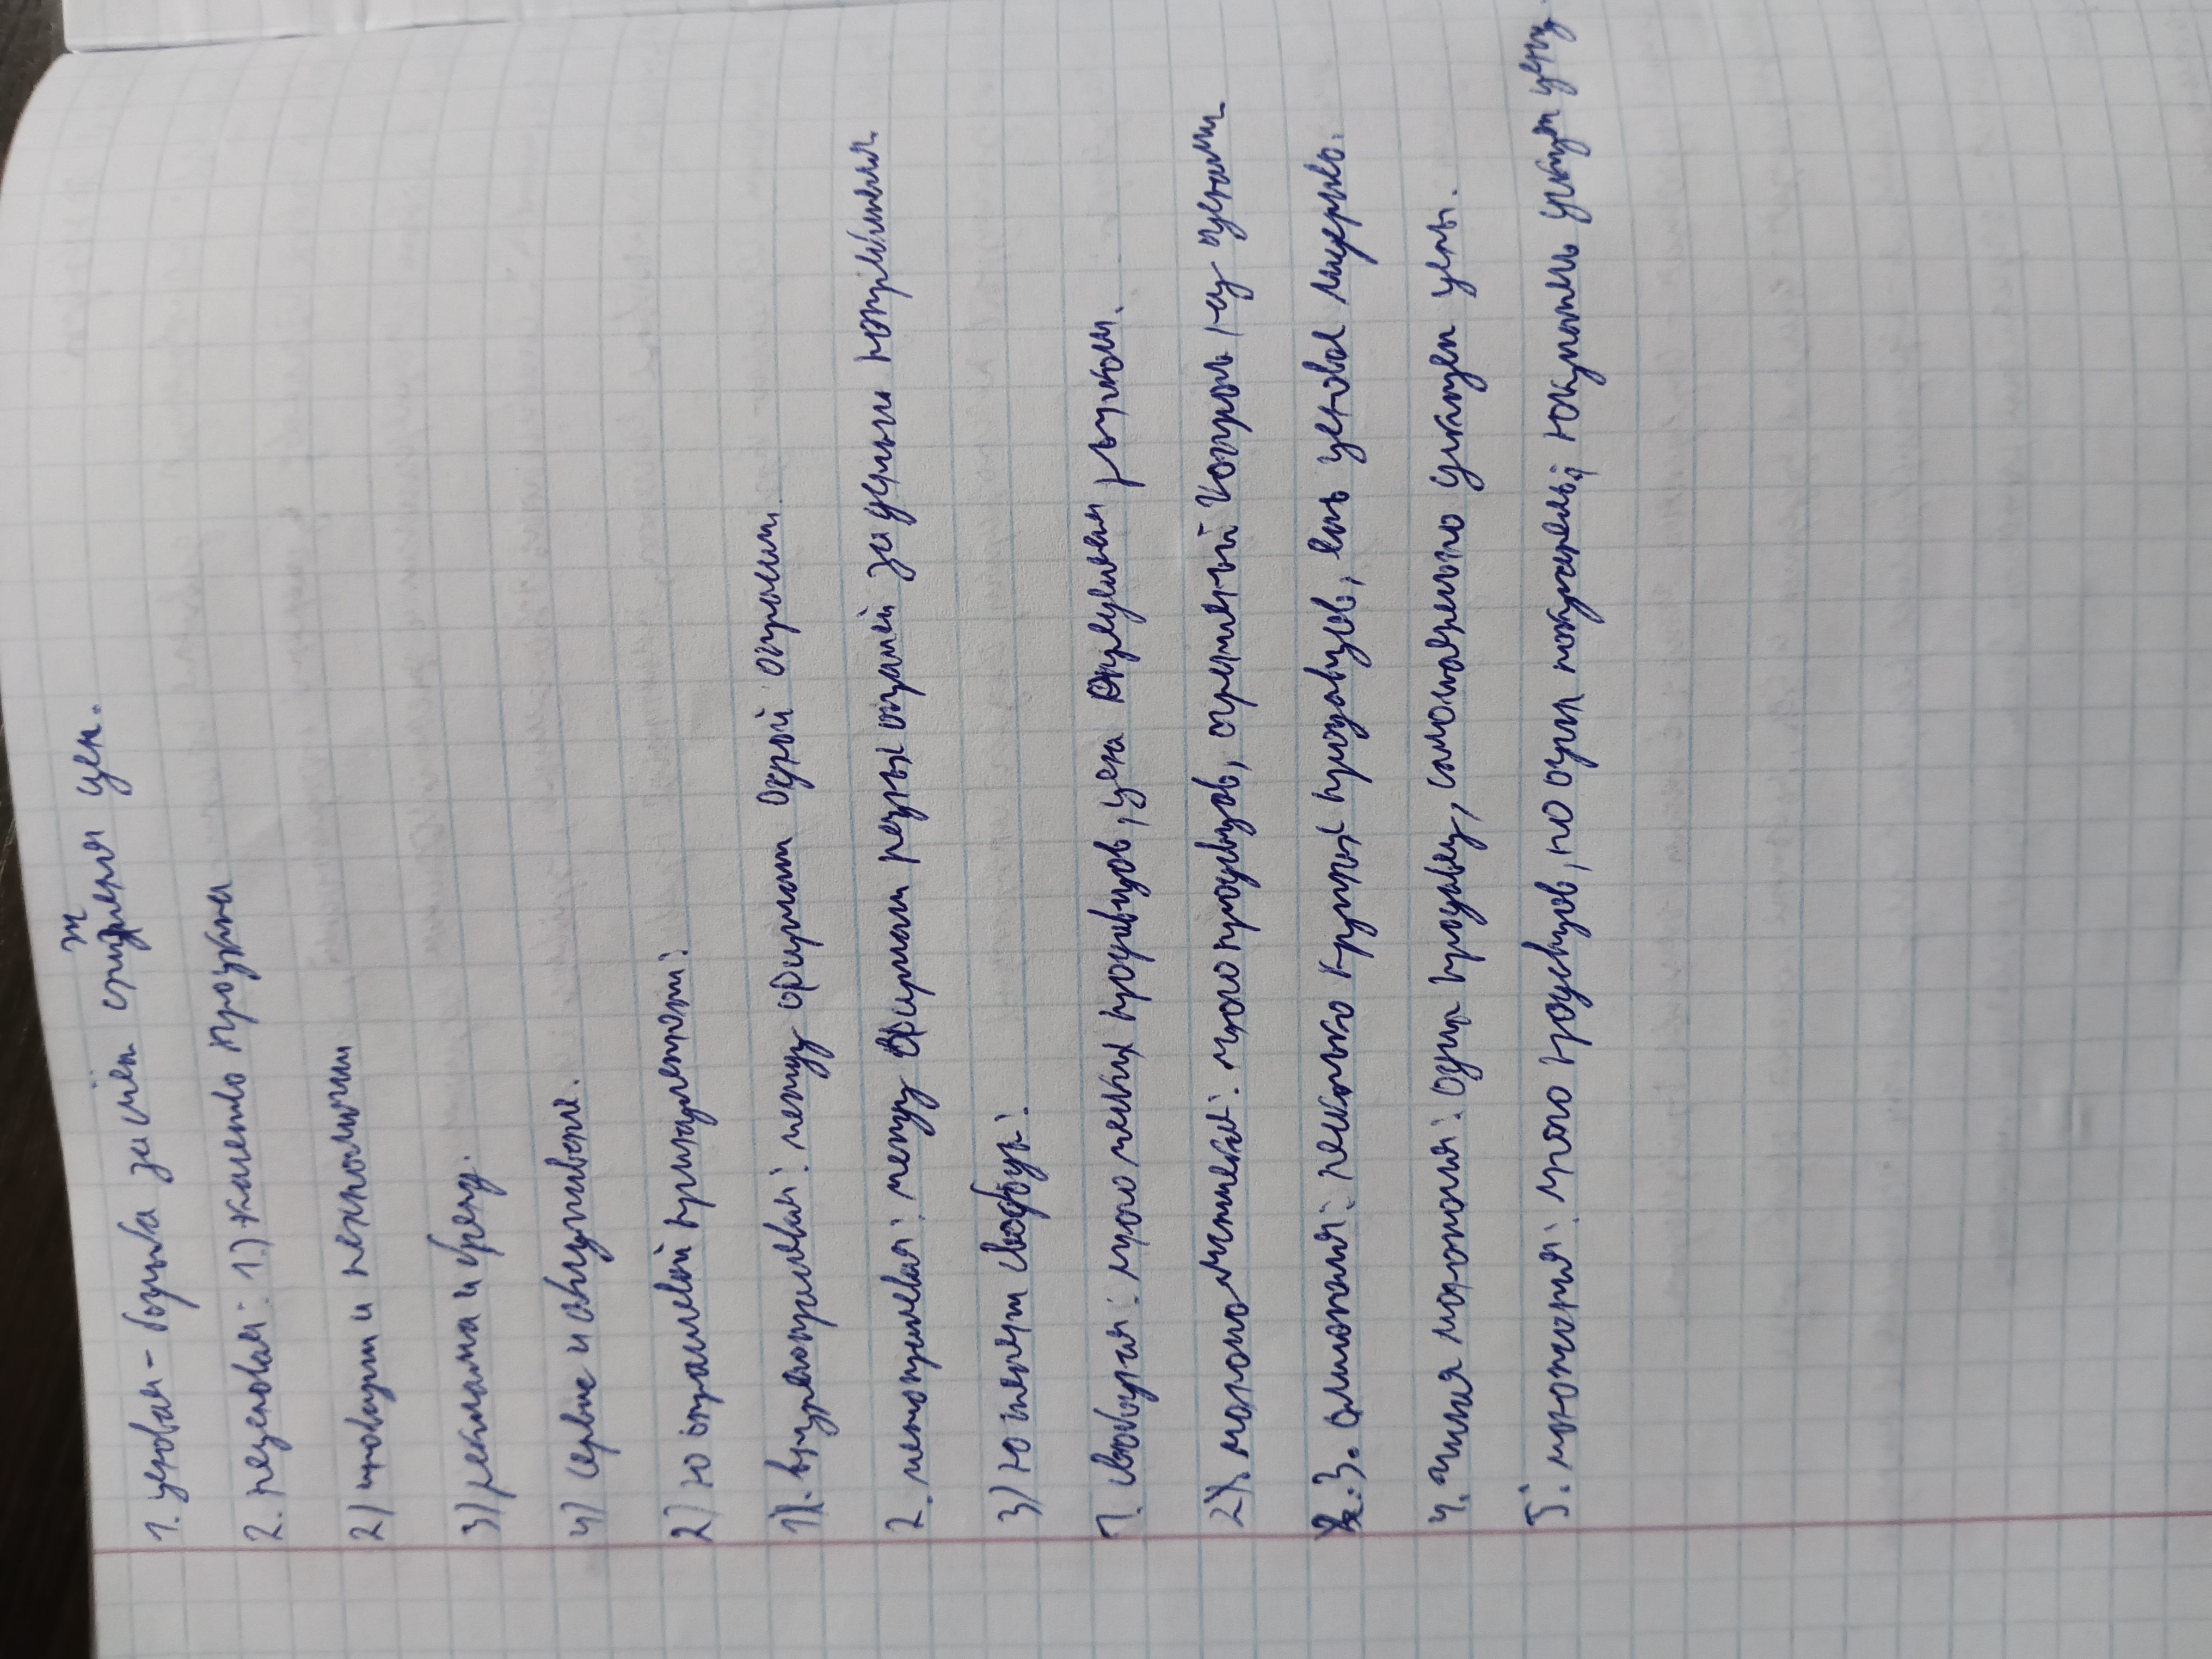 1. ценовая - борьба за счёт снижения цен.
2. неценовая: 1.) качество продукта
2) инновации и технологии
3) реклама и бренд.
4) сервис и обслуживание.
2) по отраслевой принадлежности:
1). внутриотраслевая: между фирмами одной отрасли.
2. межотраслевая: между фирмами разных отраслей за деньги потребителя.
3) по степени свободы:
1. свободная: много мелких продавцов, цена определяется рынком.
2). монополистическая: много продавцов, ограниченный контроль над ценами
3. олигополия: несколько крупных продавцов, есть ценовое лидерство.
4. чистая монополия: один продавец, самостоятельно диктует цены.
5. монопсония: много продавцов, но один покупатель, покупатель диктует цену